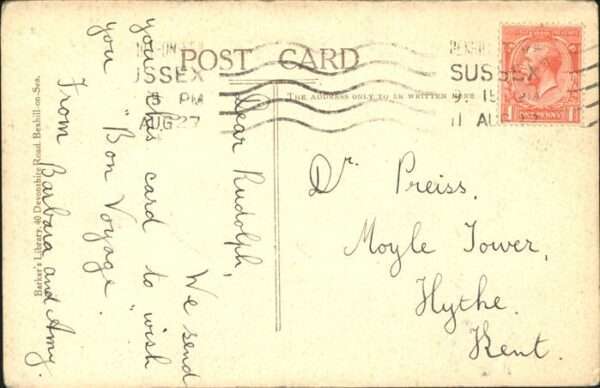 POST CARD
THE ADDRESS ONLY TO BE WRITTEN HERE
SUSSEX
11 AU
USSEX
PM
AUG 27
ONE PENNY
Dear Rudolph,
We send
you this card to wish
you "Bon Voyage".
From Barbara and Amy.
Dr. Preiss,
Moyle Tower,
Hythe.
Kent.
Barker's Library, 40 Devonshire Road, Bexhill-on-Sea.